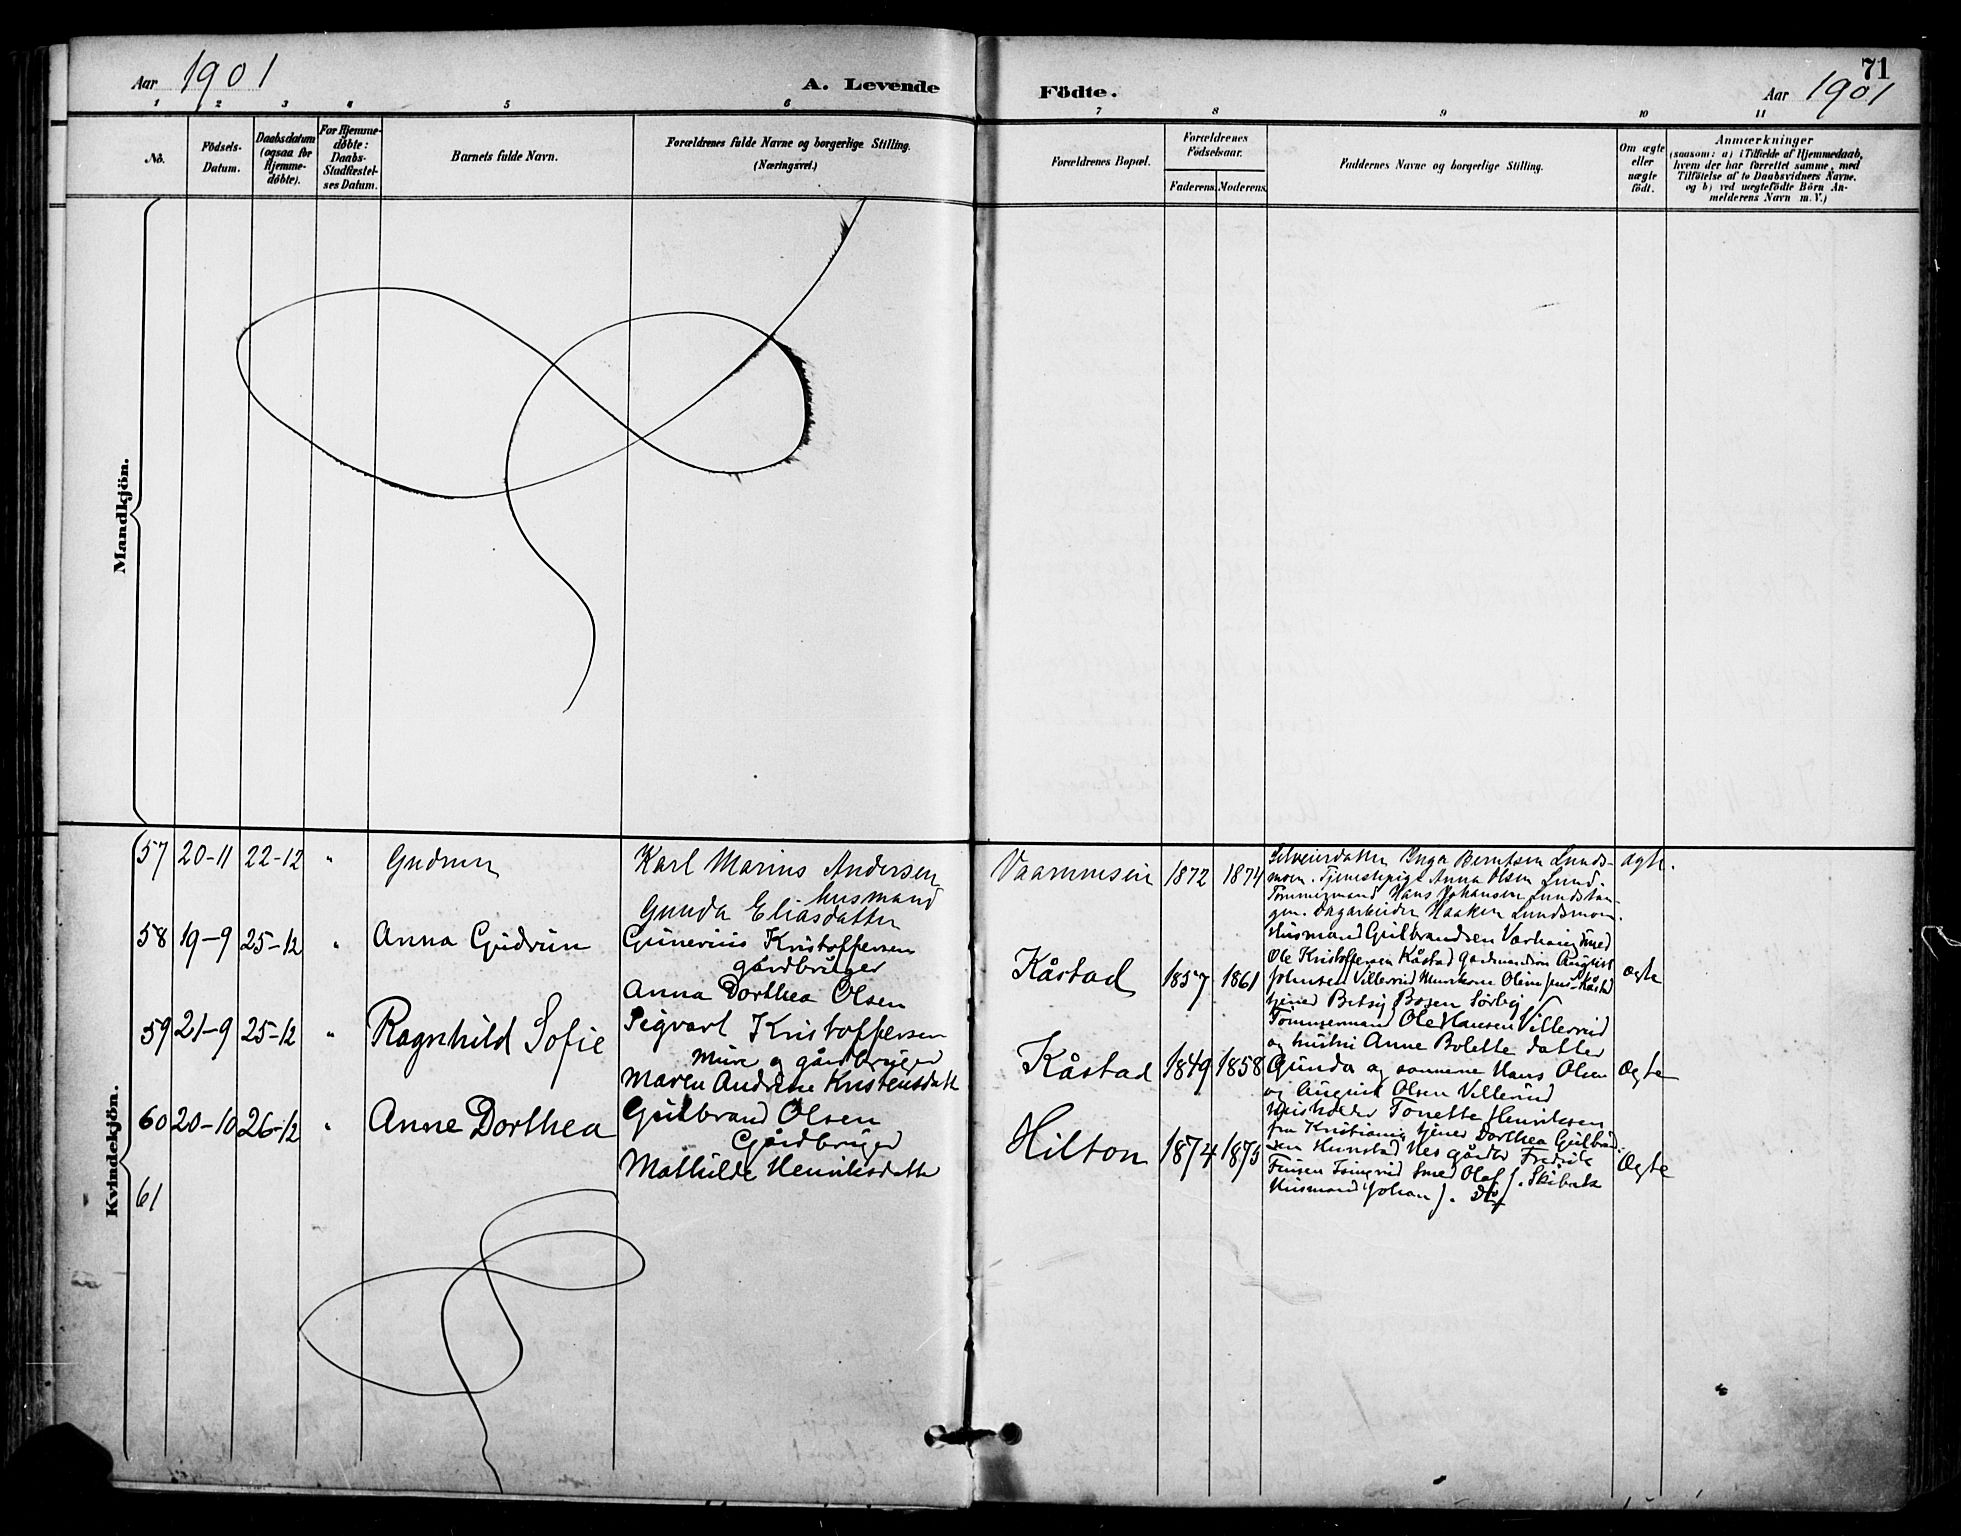 Aar 1901
A. Levende
Födte.
71
Aar 1901
1 2 3 4 5 6 7 8 9 10 11
No.
Födsels-
Datum.
Daabsdatum
(ogsaa for
Hjemme-
döbte).
For Hjemme-
döbte:
Daabs-
Stadfæstel-
ses Datum.
Barnets fulde Navn.
Forældrenes fulde Navne og borgerlige Stilling.
(Næringsvei.)
Forældrenes Bopæl.
Forældrenes
Födselsaar.
Faderens. Moderens.
Faddernes Navne og borgerlige Stilling.
Om ægte
eller
uægte
födt.
Anmærkninger
(saasom: a) i Tilfælde af Hjemmedaab,
hvem der har forrettet samme, med
Tilföielse af to Daabsvidners Navne.
og b) ved uægtefödte Börn An-
melderens Navn m. V.)
Mandkjön.
Kvindekjön.
57 20-11 22-12 " Gudrun
Karl Marius Andersen
husmand
Gunda Eliasdatter
1872 1874
Selveierdatter Inga Berntsen Lunds-
moen. Tjenestepige Anna Olsen Lund.
Tømmermand Hans Johansen Lundstan-
gen. Dagarbeider Haaken Lundsmoen.
ægte.
58 19-9 25-12 " Anna Gudrun
Gunerius Kristoffersen
gårdbruger
Anna Dorthea Olsen
Kåstad 1857 1861
Husmand Gulbrandsen Smed
Ole Kristoffersen Kåstad August
Johnsen Villerud Oline Kåstad
Betsy Sörby
ægte
59 21-9 25-12 " Ragnhild Sofie
Sigvart Kristoffersen
Mure og gårdbruger
Maren Andrine Kristensdatt
Kåstad 1849 1858
Tömmermand Ole Hansen Villerud
og hustru Anne Bolette datter
Gunda og sønnerne Hans Olsen
og August Olsen Villerud
Ægte
60 20-10 26-12 " Anne Dorthea
Gulbrand Olsen
Gårdbruger
Mathilde Henriksdatte
Hilton 1874 1875
Tonette Henriksen
fra Kristiania Dorthea Gulbrand
sen Nes Fredrik
Smed Olaf
Husmand Johan
Ægte
61